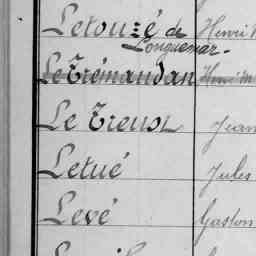 Letouzé de Henri
Longuemar.
Le Trémaudan Henri M
Le Treust Jean
Letué Jules
Levé Gaston